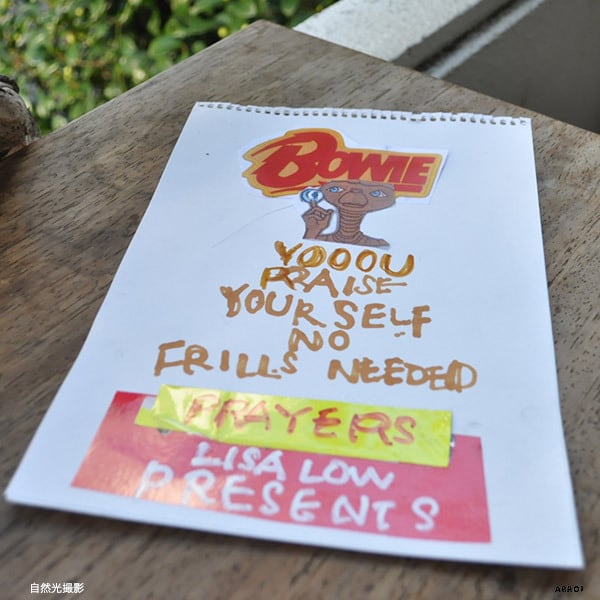 BOWIE
YOOOU
PRAISE
YOURSELF
NO
FRILLS NEEDED
PRAYERS
LISA LOW
PRESENTS
自然光撮影